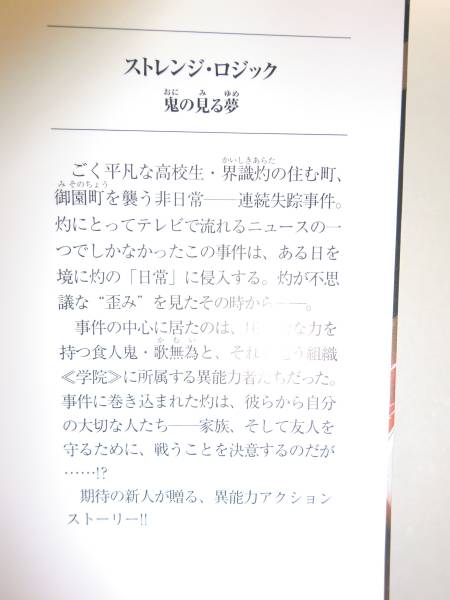 ストレンジ・ロジック
おに み ゆめ
鬼の見る夢
かいしきあらた
ごく平凡な高校生・界識灼の住む町、
みそのちょう
御園町を襲う非日常――連続失踪事件。
灼にとってテレビで流れるニュースの一
つでしかなかったこの事件は、ある日を
境に灼の「日常」に侵入する。灼が不思
議な“歪み”を見たその時から――。
事件の中心に居たのは、な力を
かむい
持つ食人鬼・歌無為と、それう組織
≪学院≫に所属する異能力者たちだった。
事件に巻き込まれた灼は、彼らから自分
の大切な人たち――家族、そして友人を
守るために、戦うことを決意するのだが
……!?
期待の新人が贈る、異能力アクション
ストーリー!!